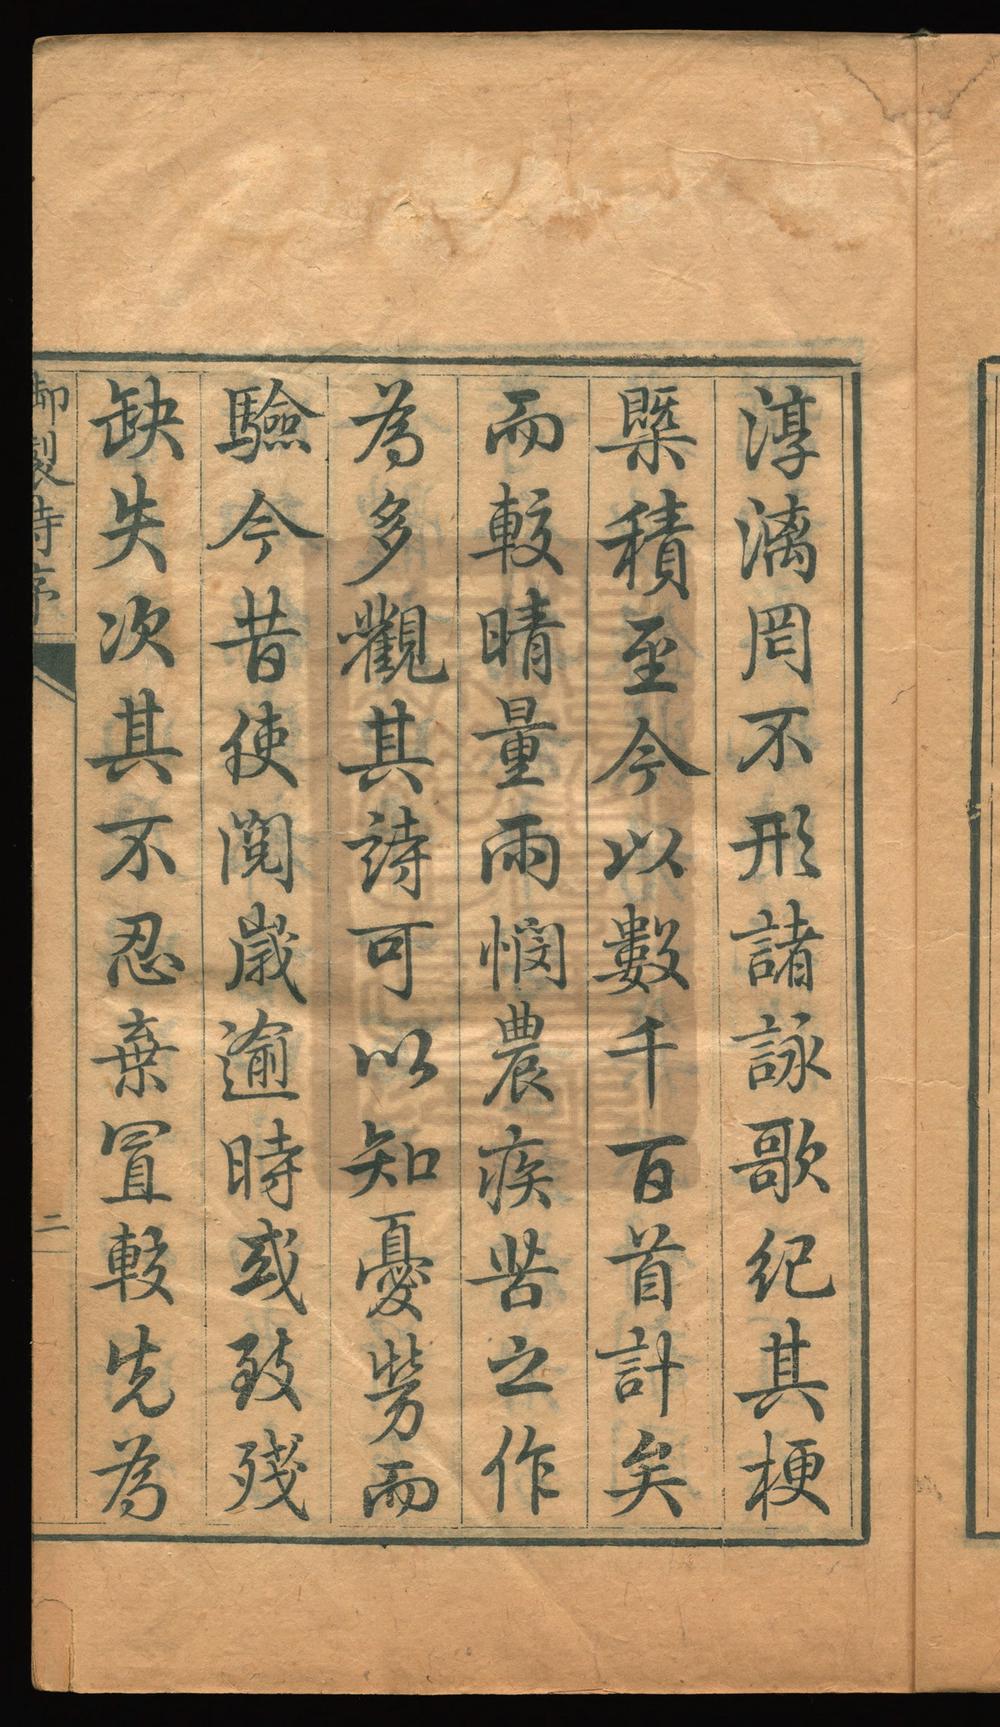 淳漓罔不形諸詠歌紀其梗
槩積至今以數千百首計矣
而較晴量雨憫農疾苦之作
為多觀其詩可以知憂勞而
驗今昔使閱歲逾時或致殘
缺失次其不忍棄置較先為
御製詩序
二